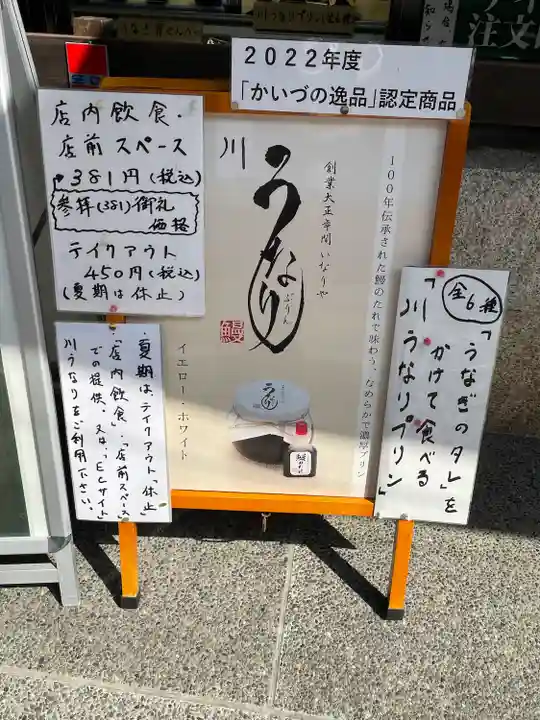 2022年度
「かいづの逸品」認定商品
店内飲食・
店前スペース
381円(税込)
参拝(381)御礼
価格
テイクアウト
450円(税込)
(夏期は休止)
・夏期は、テイクアウト「休止」
「店内飲食」・「店前スペース」
での提供、又は、「ECサイト」
川うなりをご利用下さい。
100年伝承された鰻のたれで味わう、なめらかで濃厚プリン
創業大正幸間 いなりや
川
うなり
ぷりん
鰻
イエロー・ホワイト
うなり
全6種
「うなぎのタレ」を
かけて食べる
「川うなりプリン」
注文